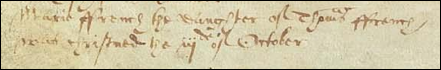 Marie ffrench the daughter of Thomas ffrench
was christned the iij of October